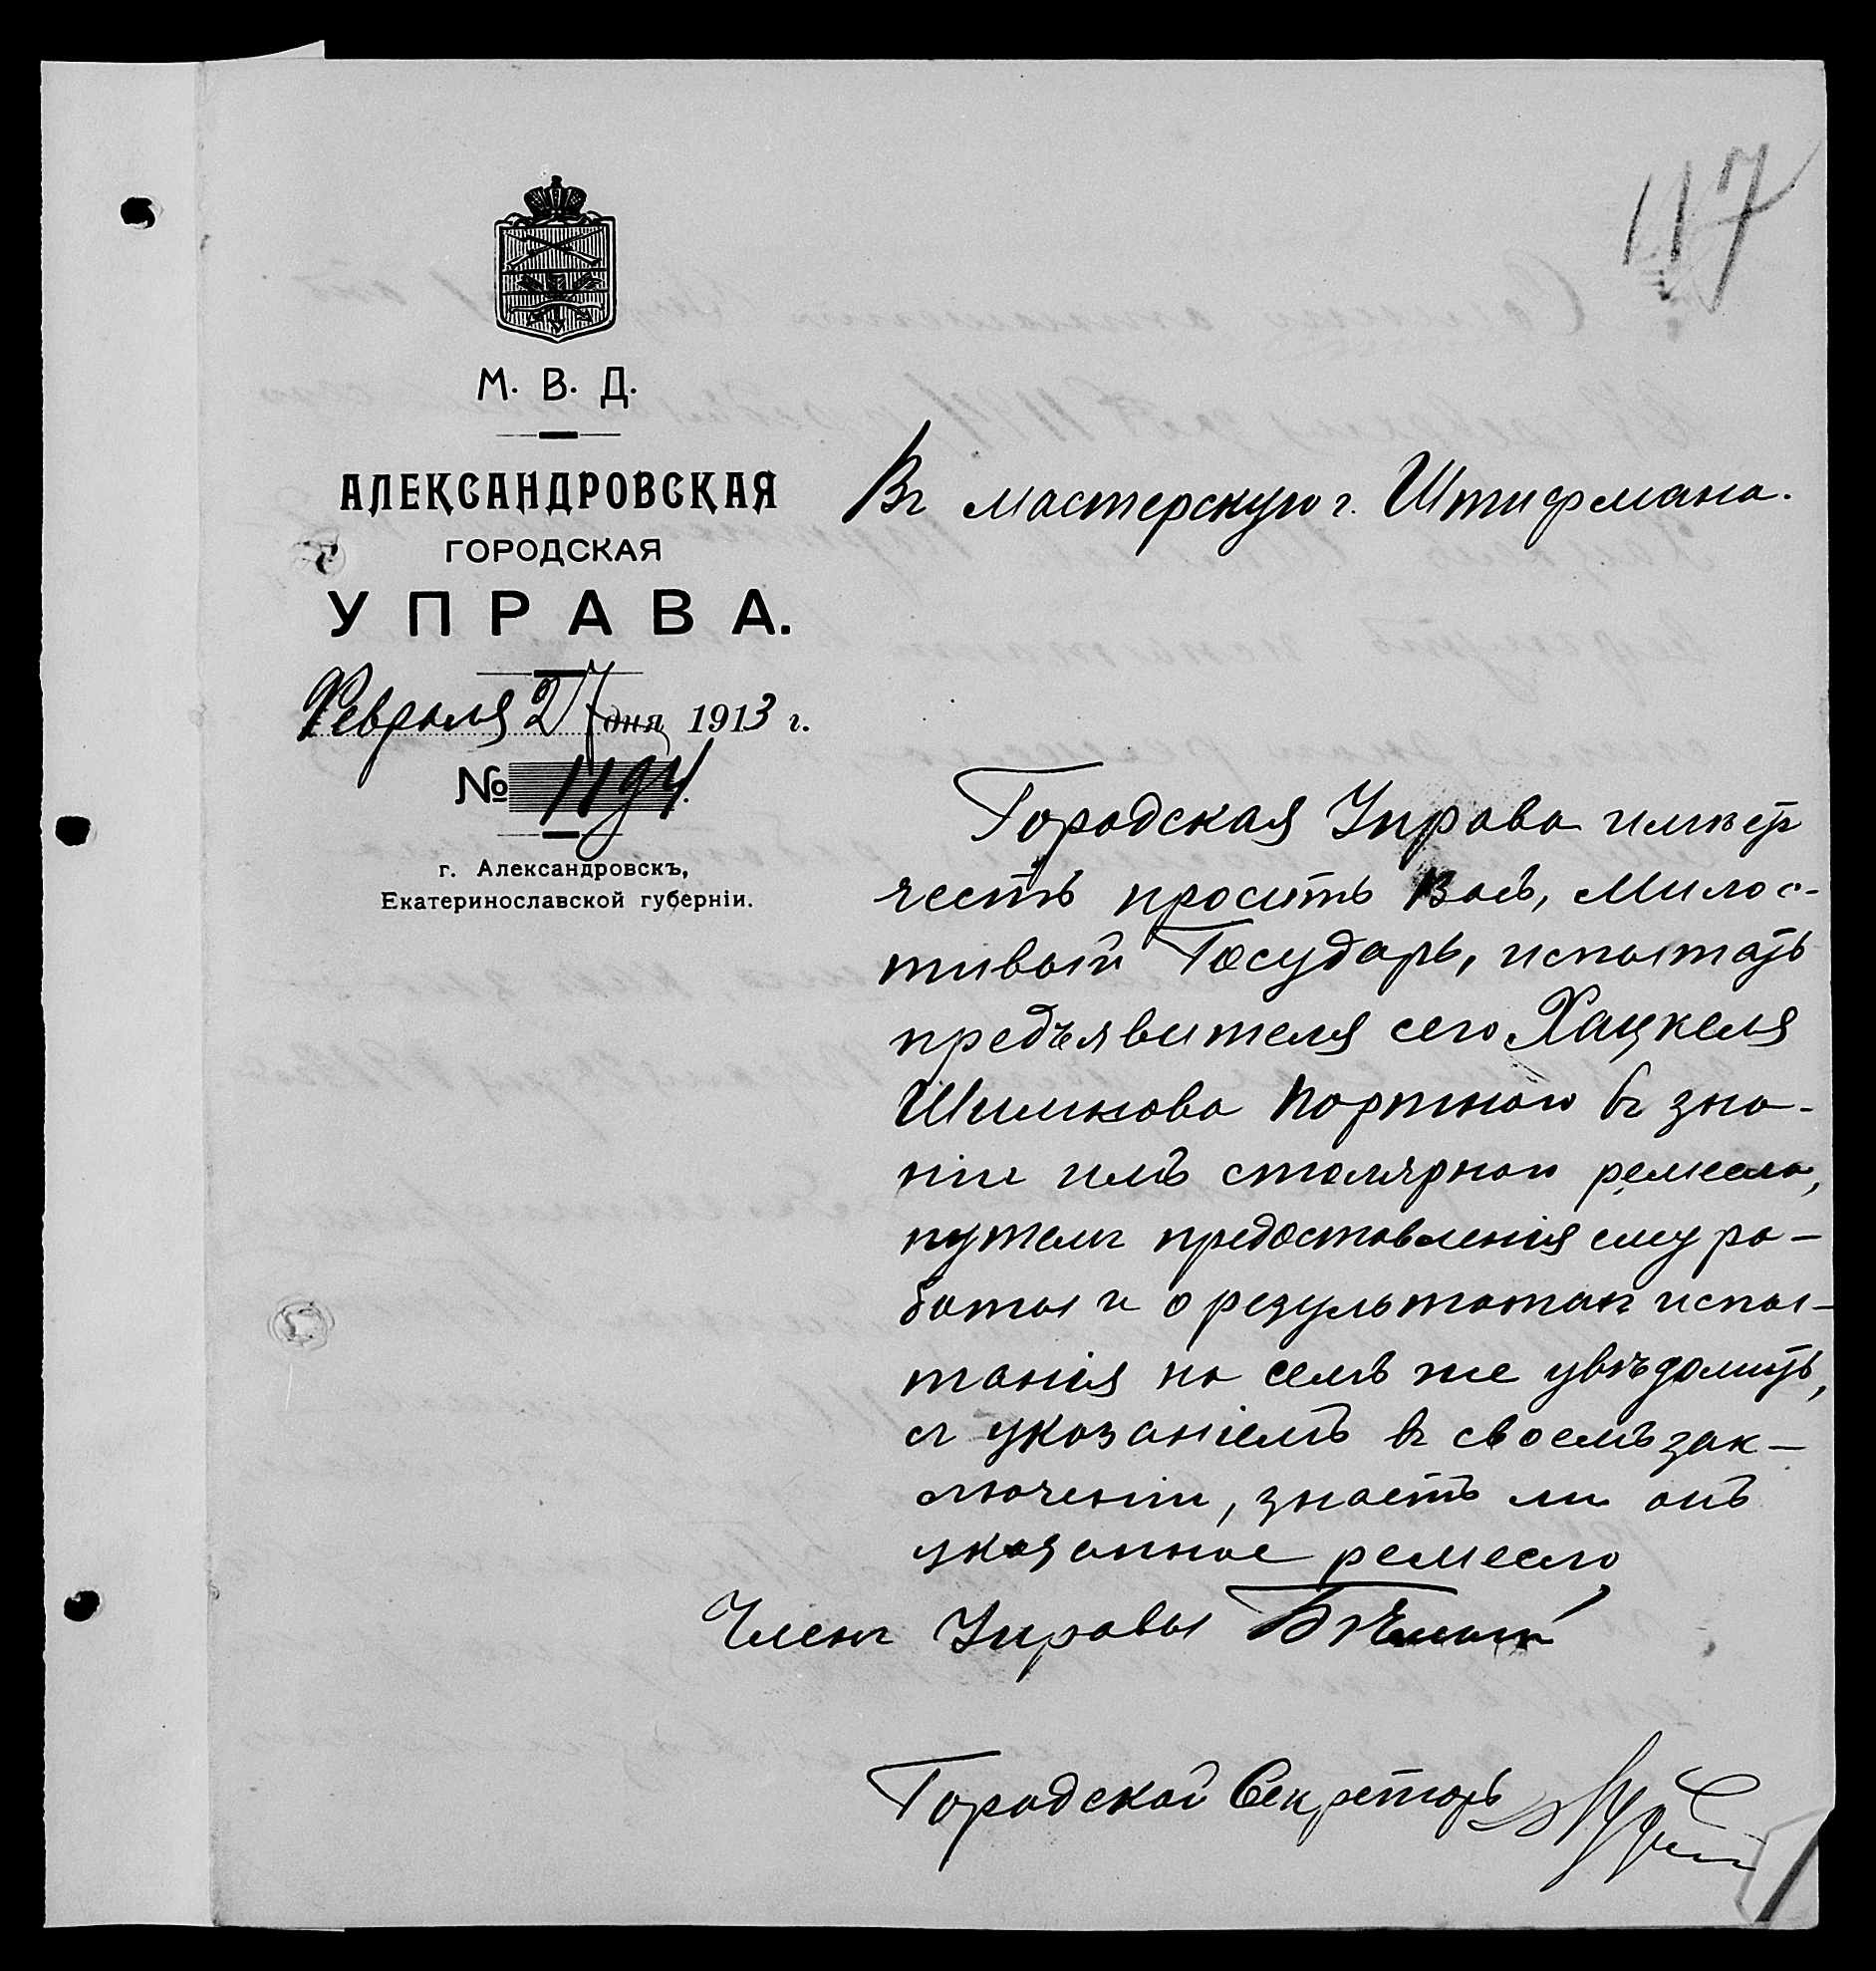 117
М. В. Д.
АЛЕКСАНДРОВСКАЯ
ГОРОДСКАЯ
УПРАВА.
Февраля 27 дня 1913 г.
№ 1194.
г. Александровскъ,
Екатеринославской губерніи.
Въ мастерскую г. Штифмана.
Городская Управа имѣетъ
честь просить Васъ, Милос-
тивый Государь, испытать
предъявителя сего Хацкеля
Шимкова Портного въ зна-
ніи имъ столярнаго ремесла,
путемъ предоставленія ему ра-
боты и о результатахъ испы-
танія на семъ же увѣдомить,
съ указаніемъ въ своемъ зак-
люченіи, знаетъ ли онъ
указанное ремесло
Членъ Управы
Городской Секретарь